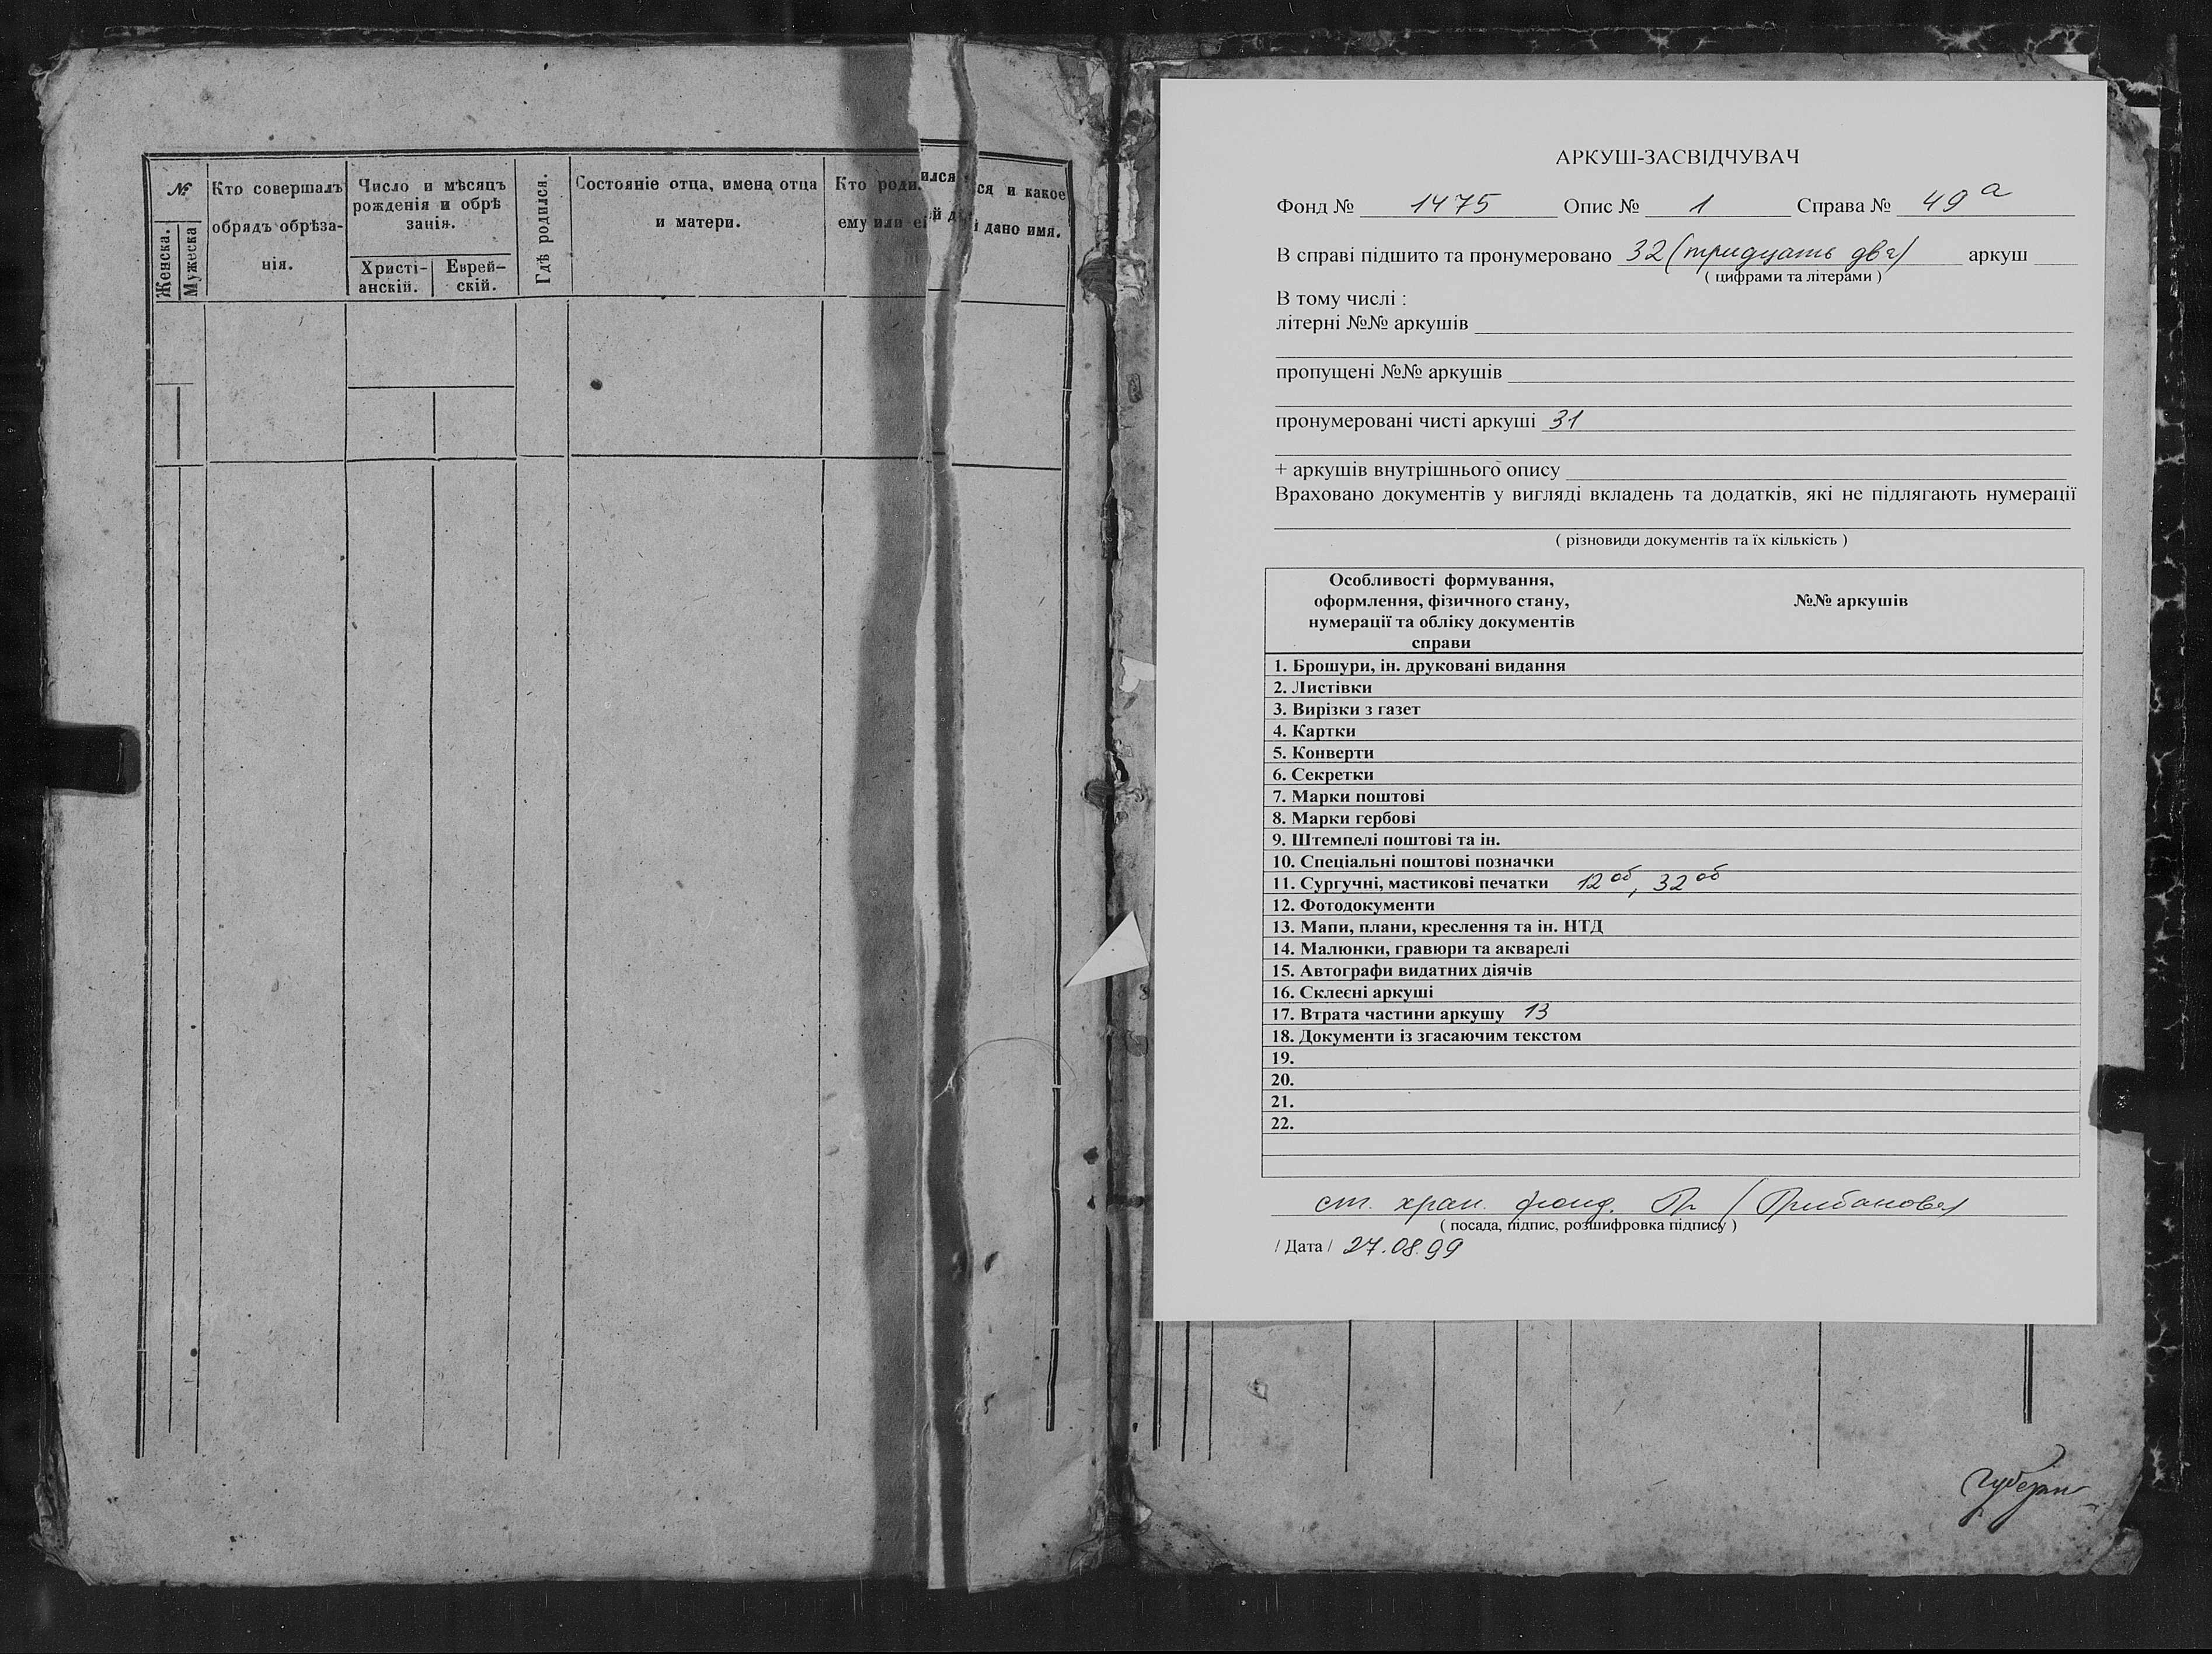 №
Женска.
Мужеска
Кто совершалъ
обрядъ обрѣза-
нія.
Число и мѣсяцъ
рожденія и обрѣ
занія.
Христі-
анскій.
Еврей-
скій.
Гдѣ родился.
Состояніе отца, имена отца
и матери.
Кто роди
ему или ей
ился
й д
ся и какое
дано имя.
АРКУШ-ЗАСВІДЧУВАЧ
Фонд № 1475 Опис № 1 Справа № 49 а
В справі підшито та пронумеровано 32 (тридцать два) аркуш
( цифрами та літерами )
В тому числі :
літерні №№ аркушів
пропущені №№ аркушів
пронумеровані чисті аркуші 31
+ аркушів внутрішнього опису
Враховано документів у вигляді вкладень та додатків, які не підлягають нумерації
( різновиди документів та їх кількість )
Особливості формування,
оформлення, фізичного стану,
нумерації та обліку документів
справи
№№ аркушів
1. Брошури, ін. друковані видання
2. Листівки
3. Вирізки з газет
4. Картки
5. Конверти
6. Секретки
7. Марки поштові
8. Марки гербові
9. Штемпелі поштові та ін.
10. Спеціальні поштові позначки
11. Сургучні, мастикові печатки 12 об, 32 об
12. Фотодокументи
13. Мапи, плани, креслення та ін. НТД
14. Малюнки, гравюри та акварелі
15. Автографи видатних діячів
16. Склеєні аркуші
17. Втрата частини аркушу 13
18. Документи із згасаючим текстом
19.
20.
21.
22.
ст. хран. фонд.
( посада, підпис, розшифровка підпису )
/ Дата / 27.08.99